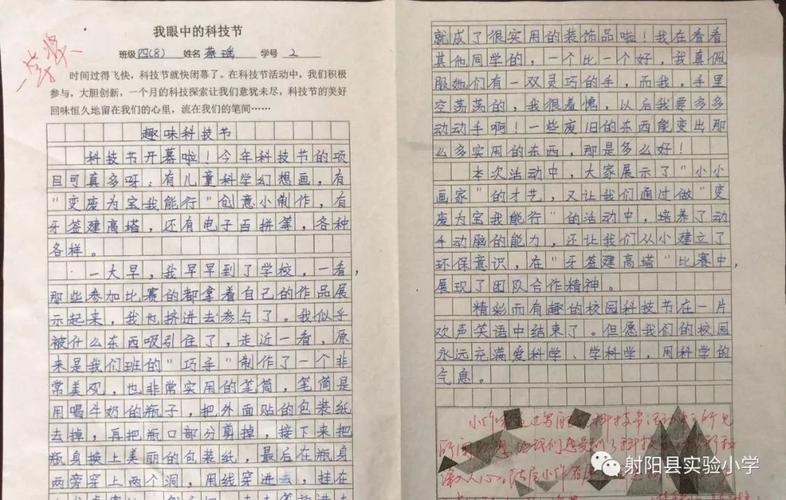 一等奖
我眼中的科技节
班级 四(8) 姓名 燕瑶 学号 2
时间过得飞快，科技节就快闭幕了。在科技节活动中，我们积极
参与，大胆创新，一个月的科技探索让我们意犹未尽，科技节的美好
回味恒久地留在我们的心里，流在我们的笔间……
趣味科技节
科技节开幕啦！今年科技节的项
目可真多呀：有儿童科学幻想画，有
“变废为宝我能行”创意小制作，有
牙签建高塔，还有电子百拼等，各种
各样。
一大早，我早早到了学校，一看，
那些参加比赛的都拿着自己的作品展
示起来，我也挤进去参与了。我似乎
被什么东西吸引住了，走近一看，原
来是我们班的“巧手”制作了一个非
常美观，也非常实用的笔筒，笔筒是
用喝牛奶的瓶子，把外面贴的包装纸
去掉，再把瓶口部分剪掉，接下来把
瓶身换上美丽的包装纸，最后在瓶身
两旁穿上两个洞，用线穿进去，挂在
就成了很实用的装饰品啦！我在看看
其他同学的，一个比一个好，我真佩
服她们有一双灵巧的手，而我，手里
空荡荡的，我很羞愧，以后我要多多
动动手啊！一些废旧的东西能变出那
么多实用的东西，那是多么好！
本次活动中，大家展示了“小小
画家”的才艺，又让我们通过做“变
废为宝我能行”的活动中，培养了动
手动脑的能力，还让我们从小建立了
环保意识，在“牙签建高塔”比赛中，
展现了团队合作精神。
精彩而有趣的校园科技节在一片
欢声笑语中结束了。但愿我们的校园
永远充满爱科学、学科学，用科学的
气息。
射阳县实验小学